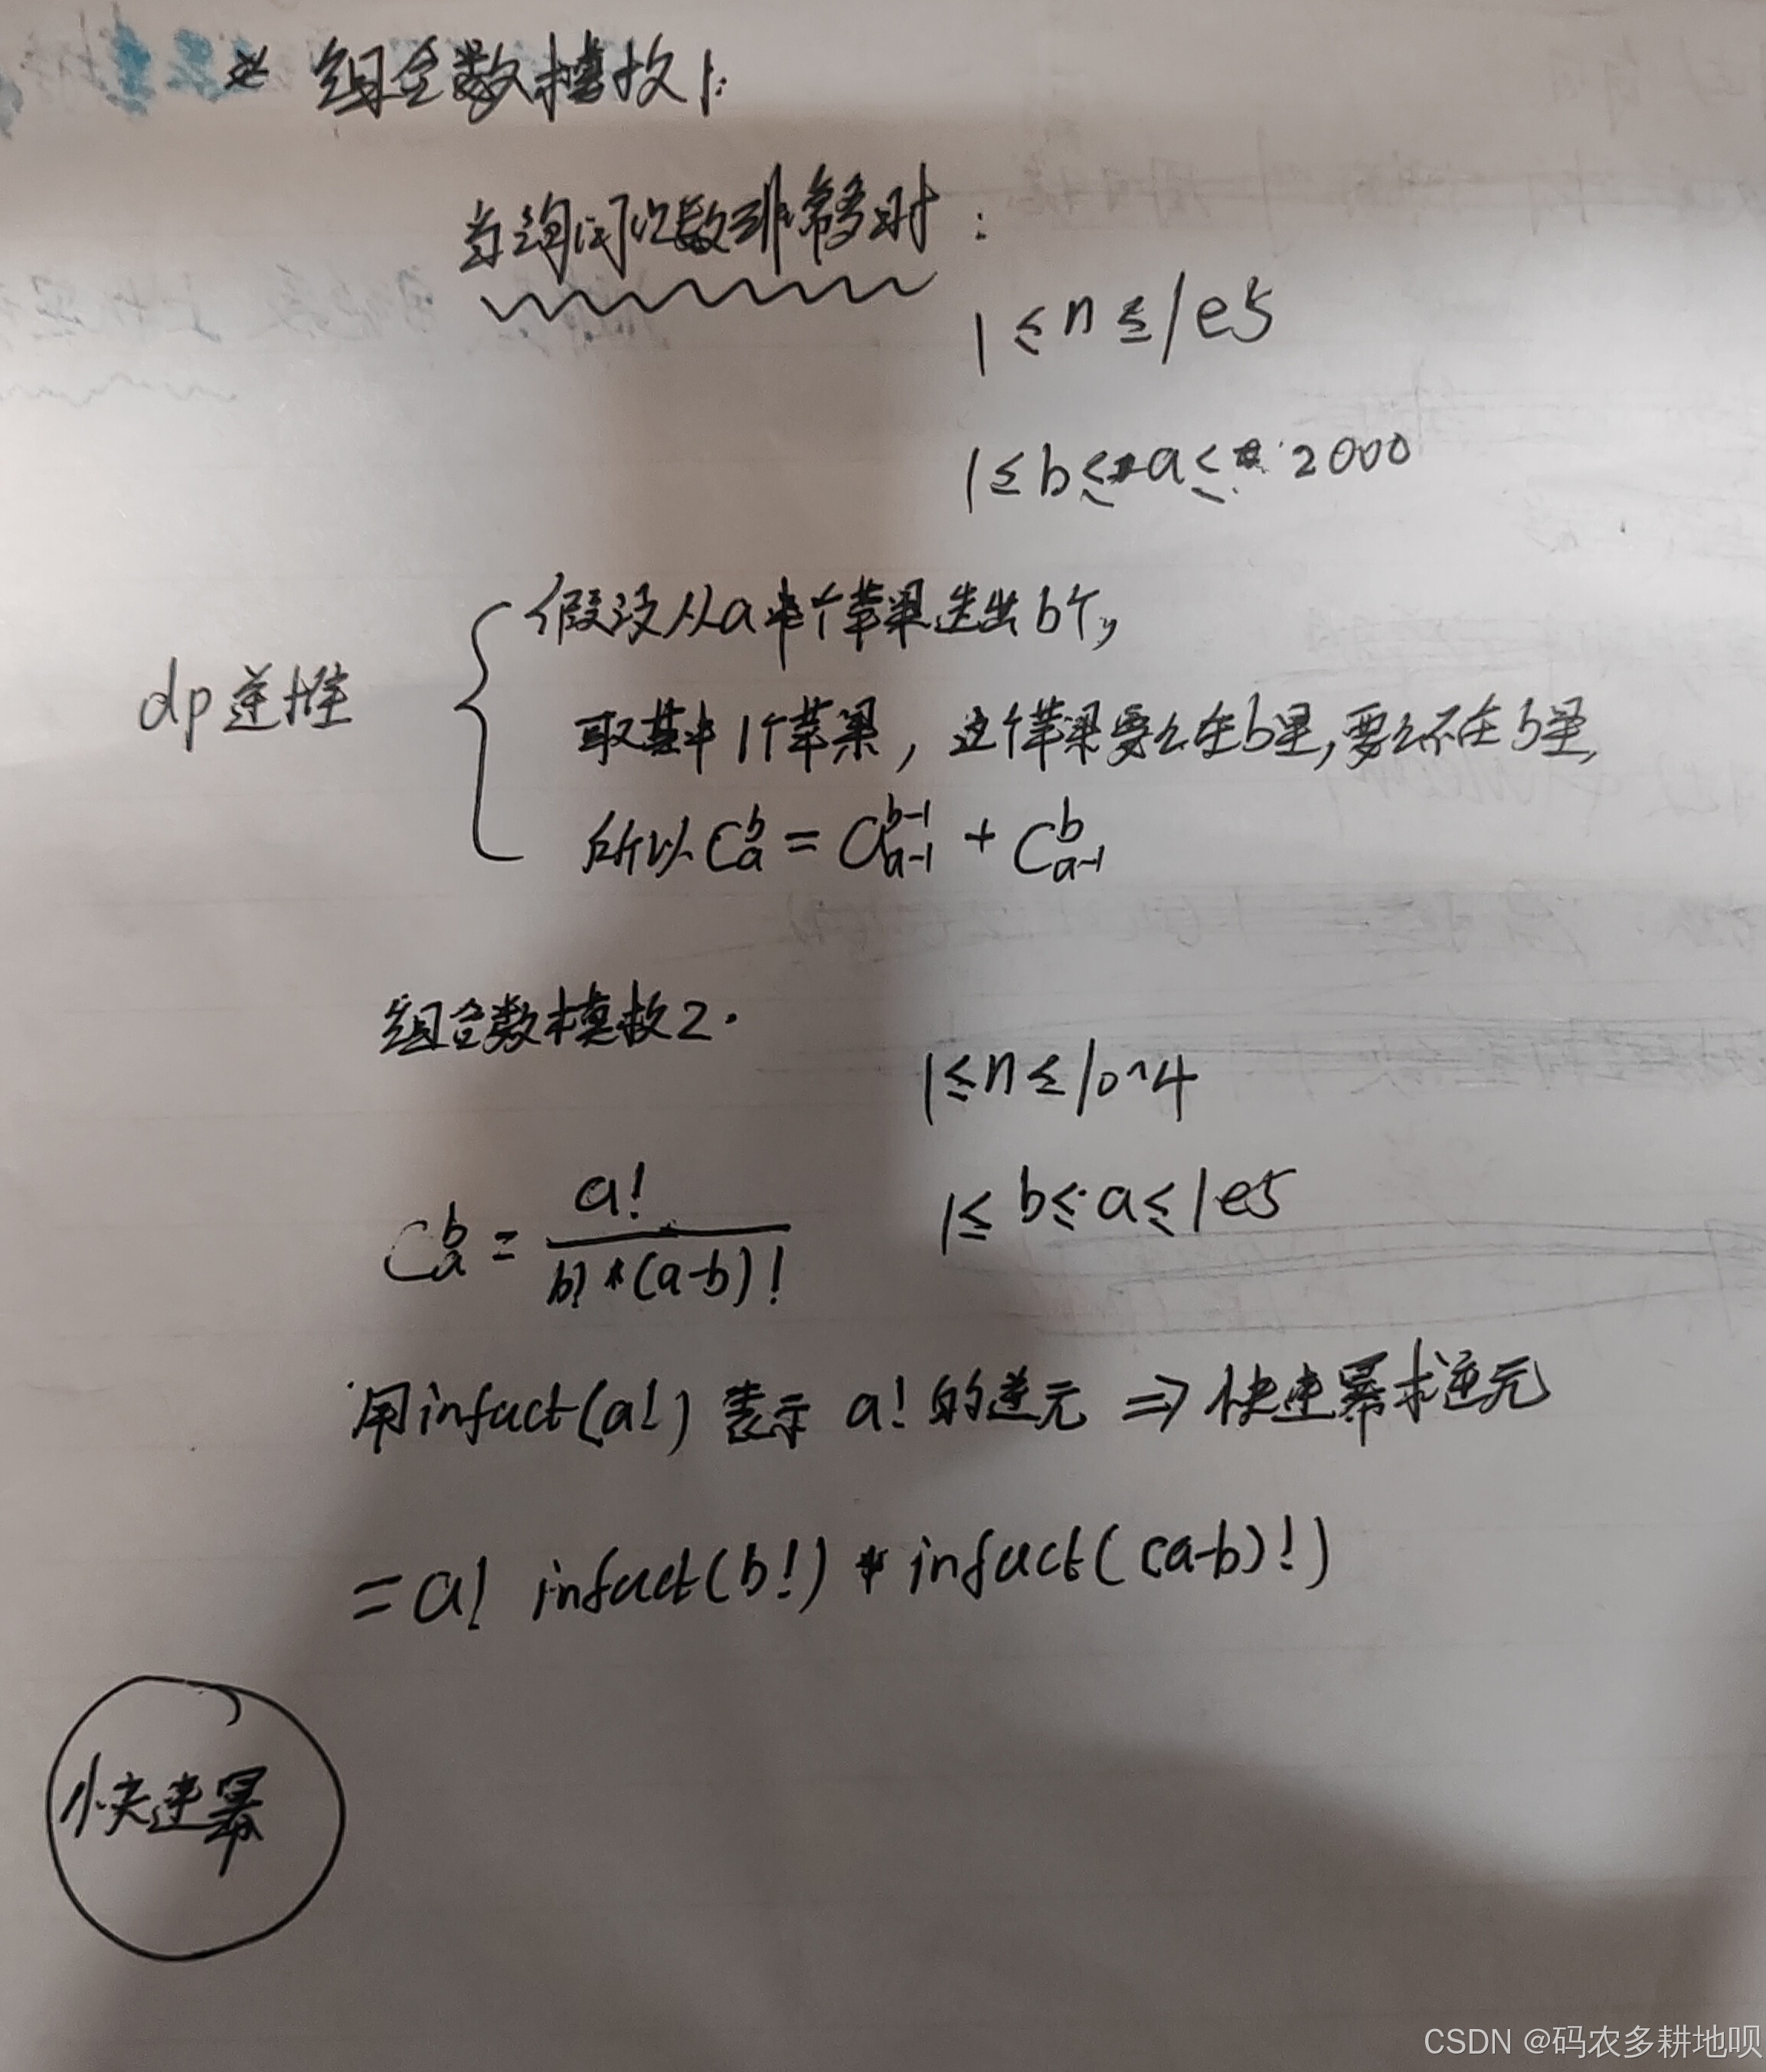 * 组合数模板1:
当询问次数非常多时:
1 ≤ n ≤ 1e5
1 ≤ b ≤ a ≤ 2000
dp递推
假设从a中个苹果选出b个,
取其中1个苹果, 这个苹果要么在b里,要么不在b里,
所以 C_a^b = C_{a-1}^{b-1} + C_{a-1}^b
组合数模板2.
1 ≤ n ≤ 10^4
1 ≤ b ≤ a ≤ 1e5
C_a^b = a! / (b! * (a-b)!)
用infact(a!) 表示 a! 的逆元 => 快速幂求逆元
= a! infact(b!) * infact((a-b)!)
快速幂
CSDN @码农多耕地呗